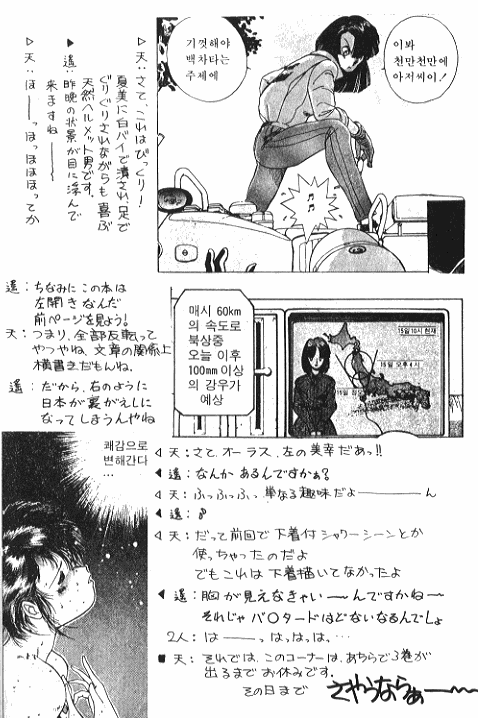 기껏해야
백차타는
주제에
이봐
천만천만에
아저씨이!
▷天:さて、これはびっくり!
夏美に白バイで潰され、足で
ぐりぐりされながらも喜ぶ
天然ヘルメット男です。
▶遥:昨晩の状景が目に浮んで
来ますね——
▷天:ほ——っほっほほほってか
遥:ちなみにこの本は
左開きなんだ
前ページを見よう!
天:つまり、全部反転って
やつやね、文章の関係上
横書きだもんね。
遥:だから、右のように
日本が裏がえしに
なってしまうんやね
매시 60km
의 속도로
북상중
오늘 이후
100mm 이상
의 강우가
예상
15일 10시 현재
15일 오후 4시
쾌감으로
변해간다
...
◁天:さて、オーラス、左の美幸だあっ!!
◀遥:なんか あるんですかぁ?
◁天:ふっふっふっ 単なる趣味だよ————ん
◀遥:
◁天:だって前回で下着付シャワーシーンとか
使っちゃったのだよ
でもこれは下着描いてなかったよ
◀遥:胸が見えなきゃい——んですかね——
それじゃバ〇タードはどないなるんでしょ
2人:は——っはっはっは、…
■天:それでは、このコーナーは、あちらで3巻が
出るまでお休みです。
その日まで さやうならぁ——